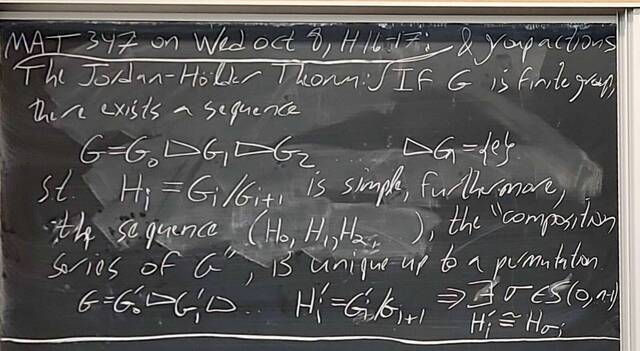 MAT 347 on Wed Oct 8, H16-17: & group actions
The Jordan-Hölder Theorem: If G is finite group,
there exists a sequence
G=G₀▷G₁▷G₂ ... ▷Gₙ={e}
st. Hᵢ=Gᵢ/Gᵢ₊₁ is simple, furthermore,
the sequence (H₀, H₁, H₂, ), the "composition
series of G", is unique up to a permutation.
G=G'₀▷G'₁▷... H'ᵢ=G'ᵢ/Gᵢ₊₁ ⇒ ∃ σ∈S(0,n-1)
H'ᵢ≅Hσᵢ